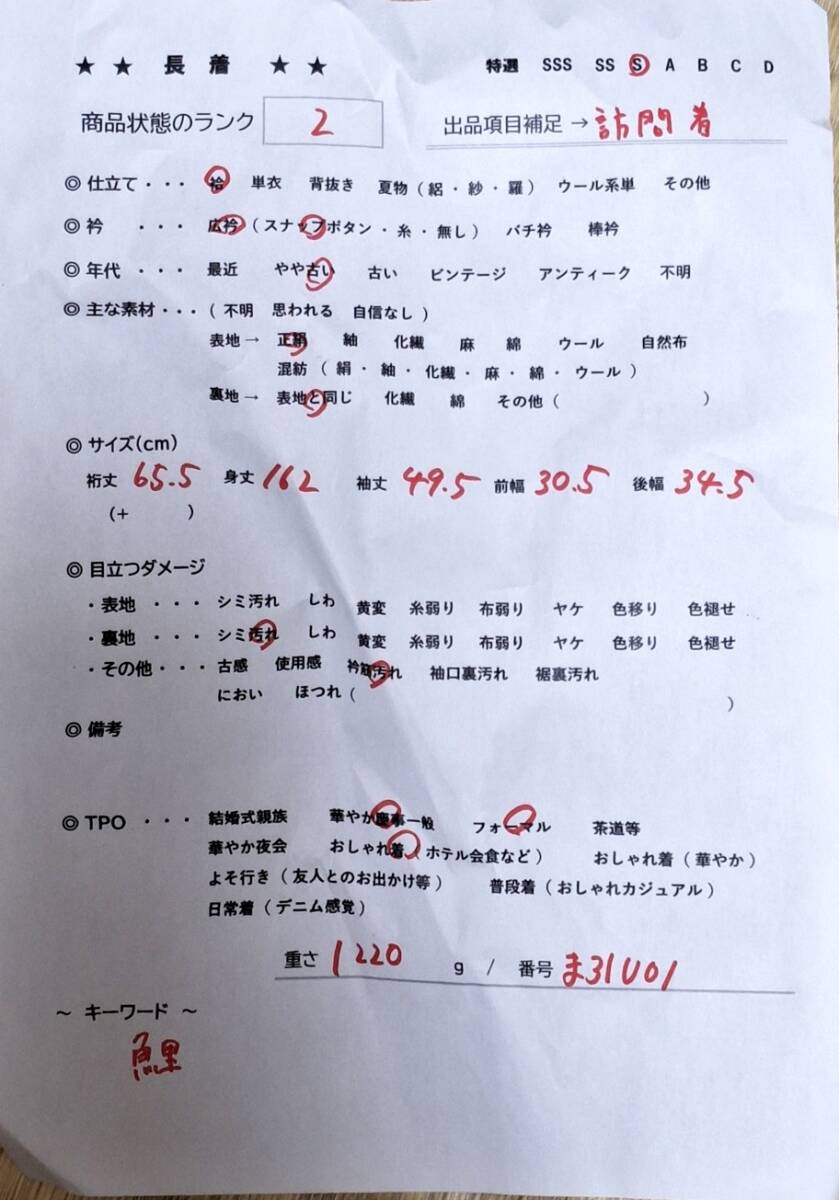 ★ ★ 長 着 ★ ★ 特選 SSS SS S A B C D
商品状態のランク 2 出品項目補足 → 訪問着
◎ 仕立て・・・ 袷 単衣 背抜き 夏物（絽・紗・羅） ウール系単 その他
◎ 衿 ・・・ 広衿（スナップボタン・糸・無し） バチ衿 棒衿
◎ 年代 ・・・ 最近 やや古い 古い ビンテージ アンティーク 不明
◎ 主な素材・・・（不明 思われる 自信なし）
表地→ 正絹 紬 化繊 麻 綿 ウール 自然布
混紡（絹・紬・化繊・麻・綿・ウール）
裏地→ 表地と同じ 化繊 綿 その他（ ）
◎ サイズ(cm)
裄丈 65.5 身丈 162 袖丈 49.5 前幅 30.5 後幅 34.5
(+ )
◎ 目立つダメージ
・表地 ・・・ シミ汚れ しわ 黄変 糸弱り 布弱り ヤケ 色移り 色褪せ
・裏地 ・・・ シミ汚れ しわ 黄変 糸弱り 布弱り ヤケ 色移り 色褪せ
・その他・・・ 古感 使用感 衿筋汚れ 袖口裏汚れ 裾裏汚れ
におい ほつれ（ ）
◎ 備考
◎ TPO ・・・ 結婚式親族 華やか慶事一般 フォーマル 茶道等
華やか夜会 おしゃれ着（ホテル会食など） おしゃれ着（華やか）
よそ行き（友人とのお出かけ等） 普段着（おしゃれカジュアル）
日常着（デニム感覚）
重さ 1220 g / 番号 ま31U01
～ キーワード ～
鯉